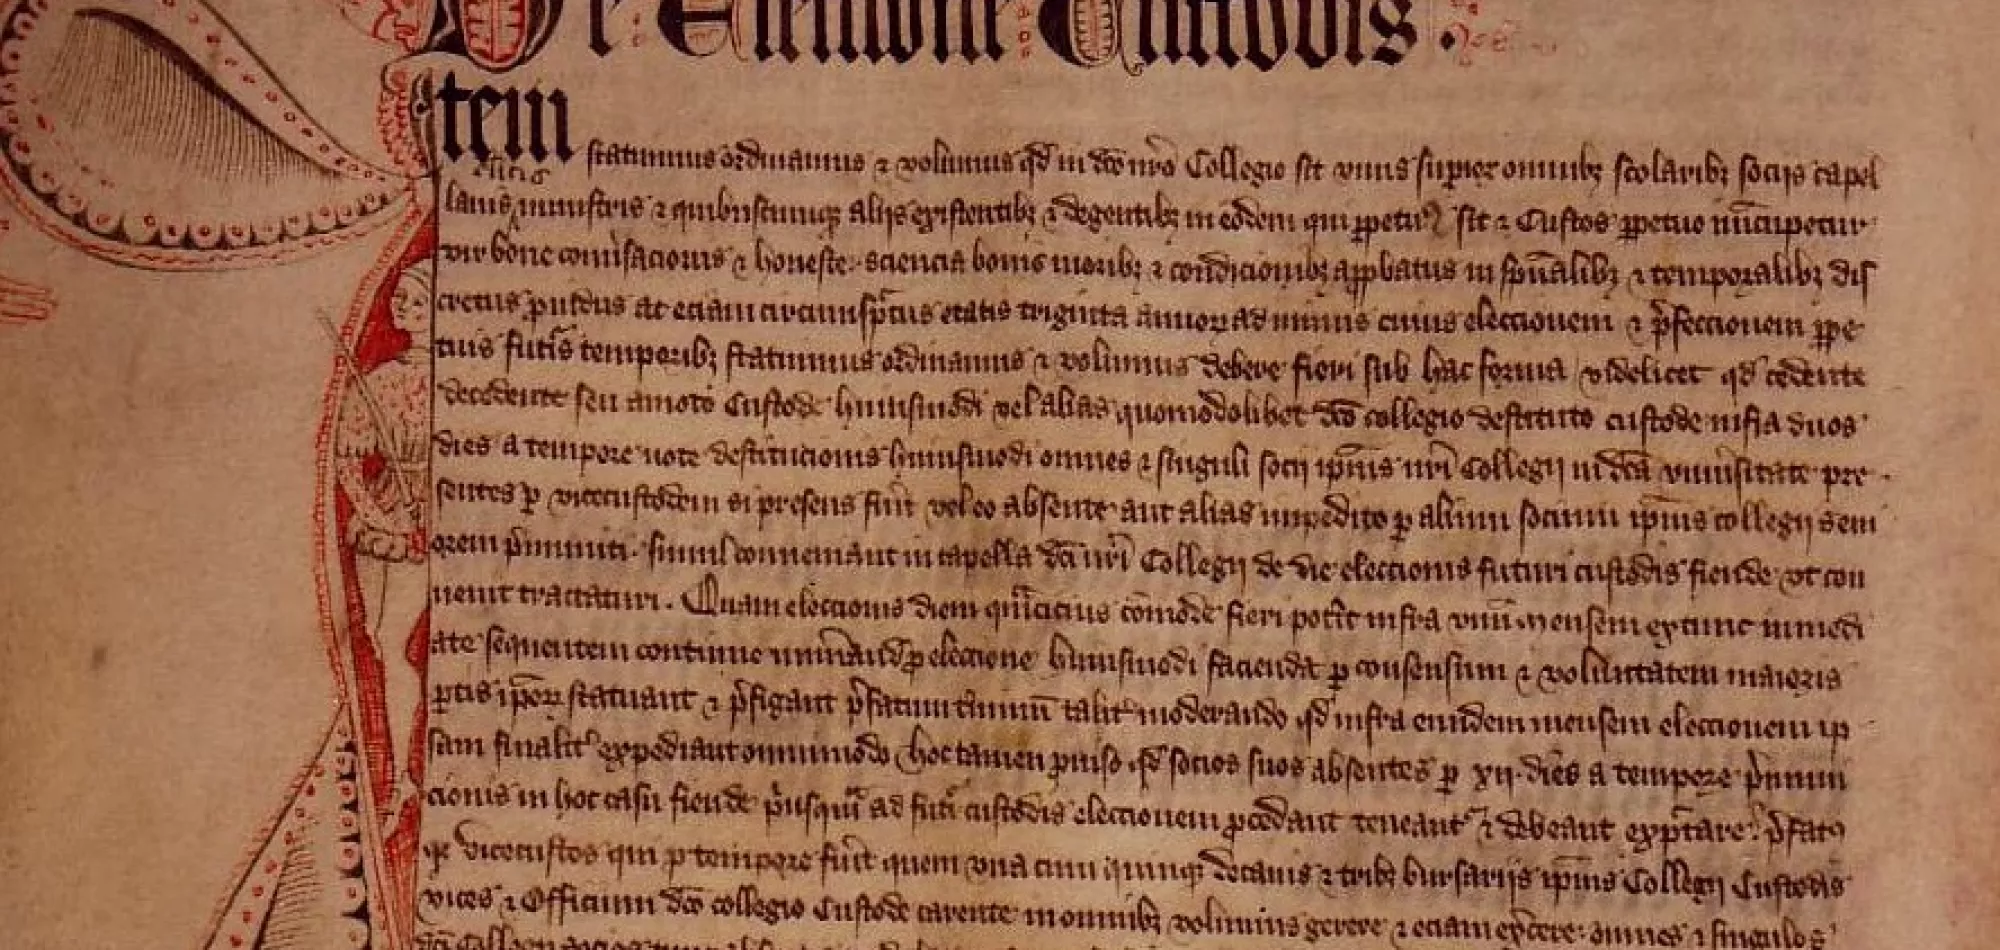 De Electione Custodis.
Item statuimus ordinamus ⁊ volumus qd in dco nro Collegio sit vnus supior omnibꝫ scolaribꝫ socijs capel
clicis
lanis ministris ⁊ quibuscumqꝫ alijs existentibꝫ ⁊ degentibꝫ in eodem qui ppetuꝰ sit ⁊ Custos ppetuo nūcupetur
vir bone conuersacionis ⁊ honeste sciencia bonis moribꝫ ⁊ condicionibꝫ approbatus in spualibꝫ ⁊ temporalibꝫ dis
cretus prudens ac eciam circumspctus etatis triginta annorꝫ ad minus cuius eleccionem ⁊ pfeccionem ppe
tuis futis temporibꝫ statuimus ordinamus ⁊ volumus debere fieri sub hac forma videlicet qd cedente
decedente seu amoto Custode huiusmodi vel alias quomodolibet dco collegio destituto custode infra duos
dies a tempore note destitucionis huiusmodi omnes ⁊ singuli socij ipius nri Collegij in dca vniusitate pre
sentes p vicecustodem si presens fuit vel eo absente aut alias impedito p alium socium ipius collegij seni
orem pmuniti simul conueniant in capella dci nri Collegij de die eleccionis futuri custodis fiende vt con
uenit tractaturi. Quam eleccionis diem qmcicius comode fieri potit infra vnū mensem extunc inmedi
ate sequentem continue numerand p eleccione huiusmodi facienda p consensum ⁊ voluntatem maioris
ptis iporꝫ statuant ⁊ pfigant pfatum tminū talit moderando qd infra eundem mensem eleccionem ip
sam finalit expediant omnimodo hoc tamen puiso qd socios suos absentes p xij dies a tempore pmuni
cionis in hoc casu fiende priusqm ad futi custodis eleccionem pcedant teneant ⁊ debeant expctare. pfatꝰ
qꝫ vicecustos qui p tempore fuit quem vna cum quinqꝫ decanis ⁊ tribꝫ bursarijs ipius Collegij Custodis
vices ⁊ Officium dco collegio Custode carente in omnibꝫ volumus gerere ⁊ eciam expcere: omnes ⁊ singulos
dci Collegij socios